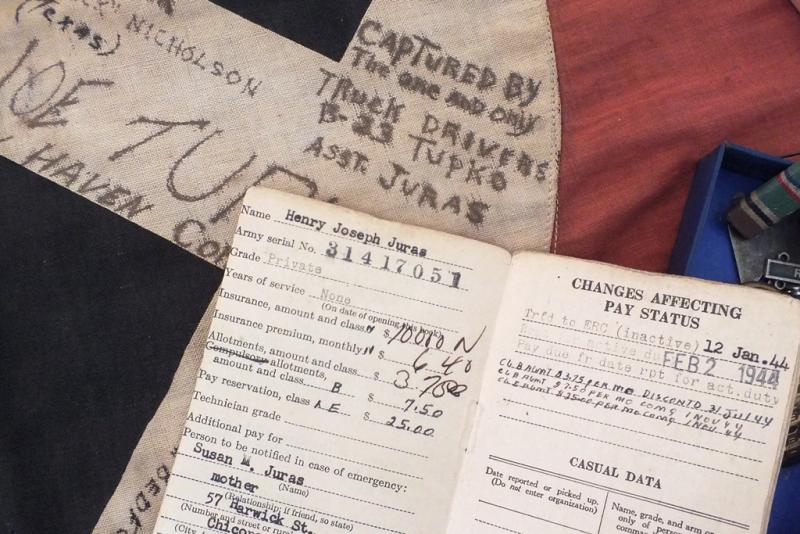 NICHOLSON
(Texas)
JOE TUPK
HAVEN CO
CAPTURED BY
The one and only
TRUCK DRIVERS
B-23 TUPKO
ASST. JURAS
Name Henry Joseph Juras
Army serial No. 31417051
Grade Private
Years of service None
(On date of opening this book)
Insurance, amount and class N $ 10000 N
Insurance premium, monthly N $ 6.40
Allotments, amount and class $ 3.75
Compulsory allotments,
amount and class B $ 7.50
Pay reservation, class A E $ 25.00
Technician grade
Additional pay for
Person to be notified in case of emergency:
Susan M. Juras
(Name)
mother
(Relationship; if friend, so state)
57 Harwick St.
(Number and street or rural
Chicop
(City,
CHANGES AFFECTING
PAY STATUS
Trfd to ERC (inactive) 12 Jan.44
active du FEB 2 1944
Pay due fr date rpt for act.duty
CL B ALMT $3.75 PER MO DISCONTD 31 JUL 44
CL B ALMT $7.50 PER MO COMG 1 NOV 44
CL E ALMT $25.00 PER MO COMG 1 NOV. 44
CASUAL DATA
Date reported or picked up.
(Do not enter organization)
Name, grade, and arm or
only of